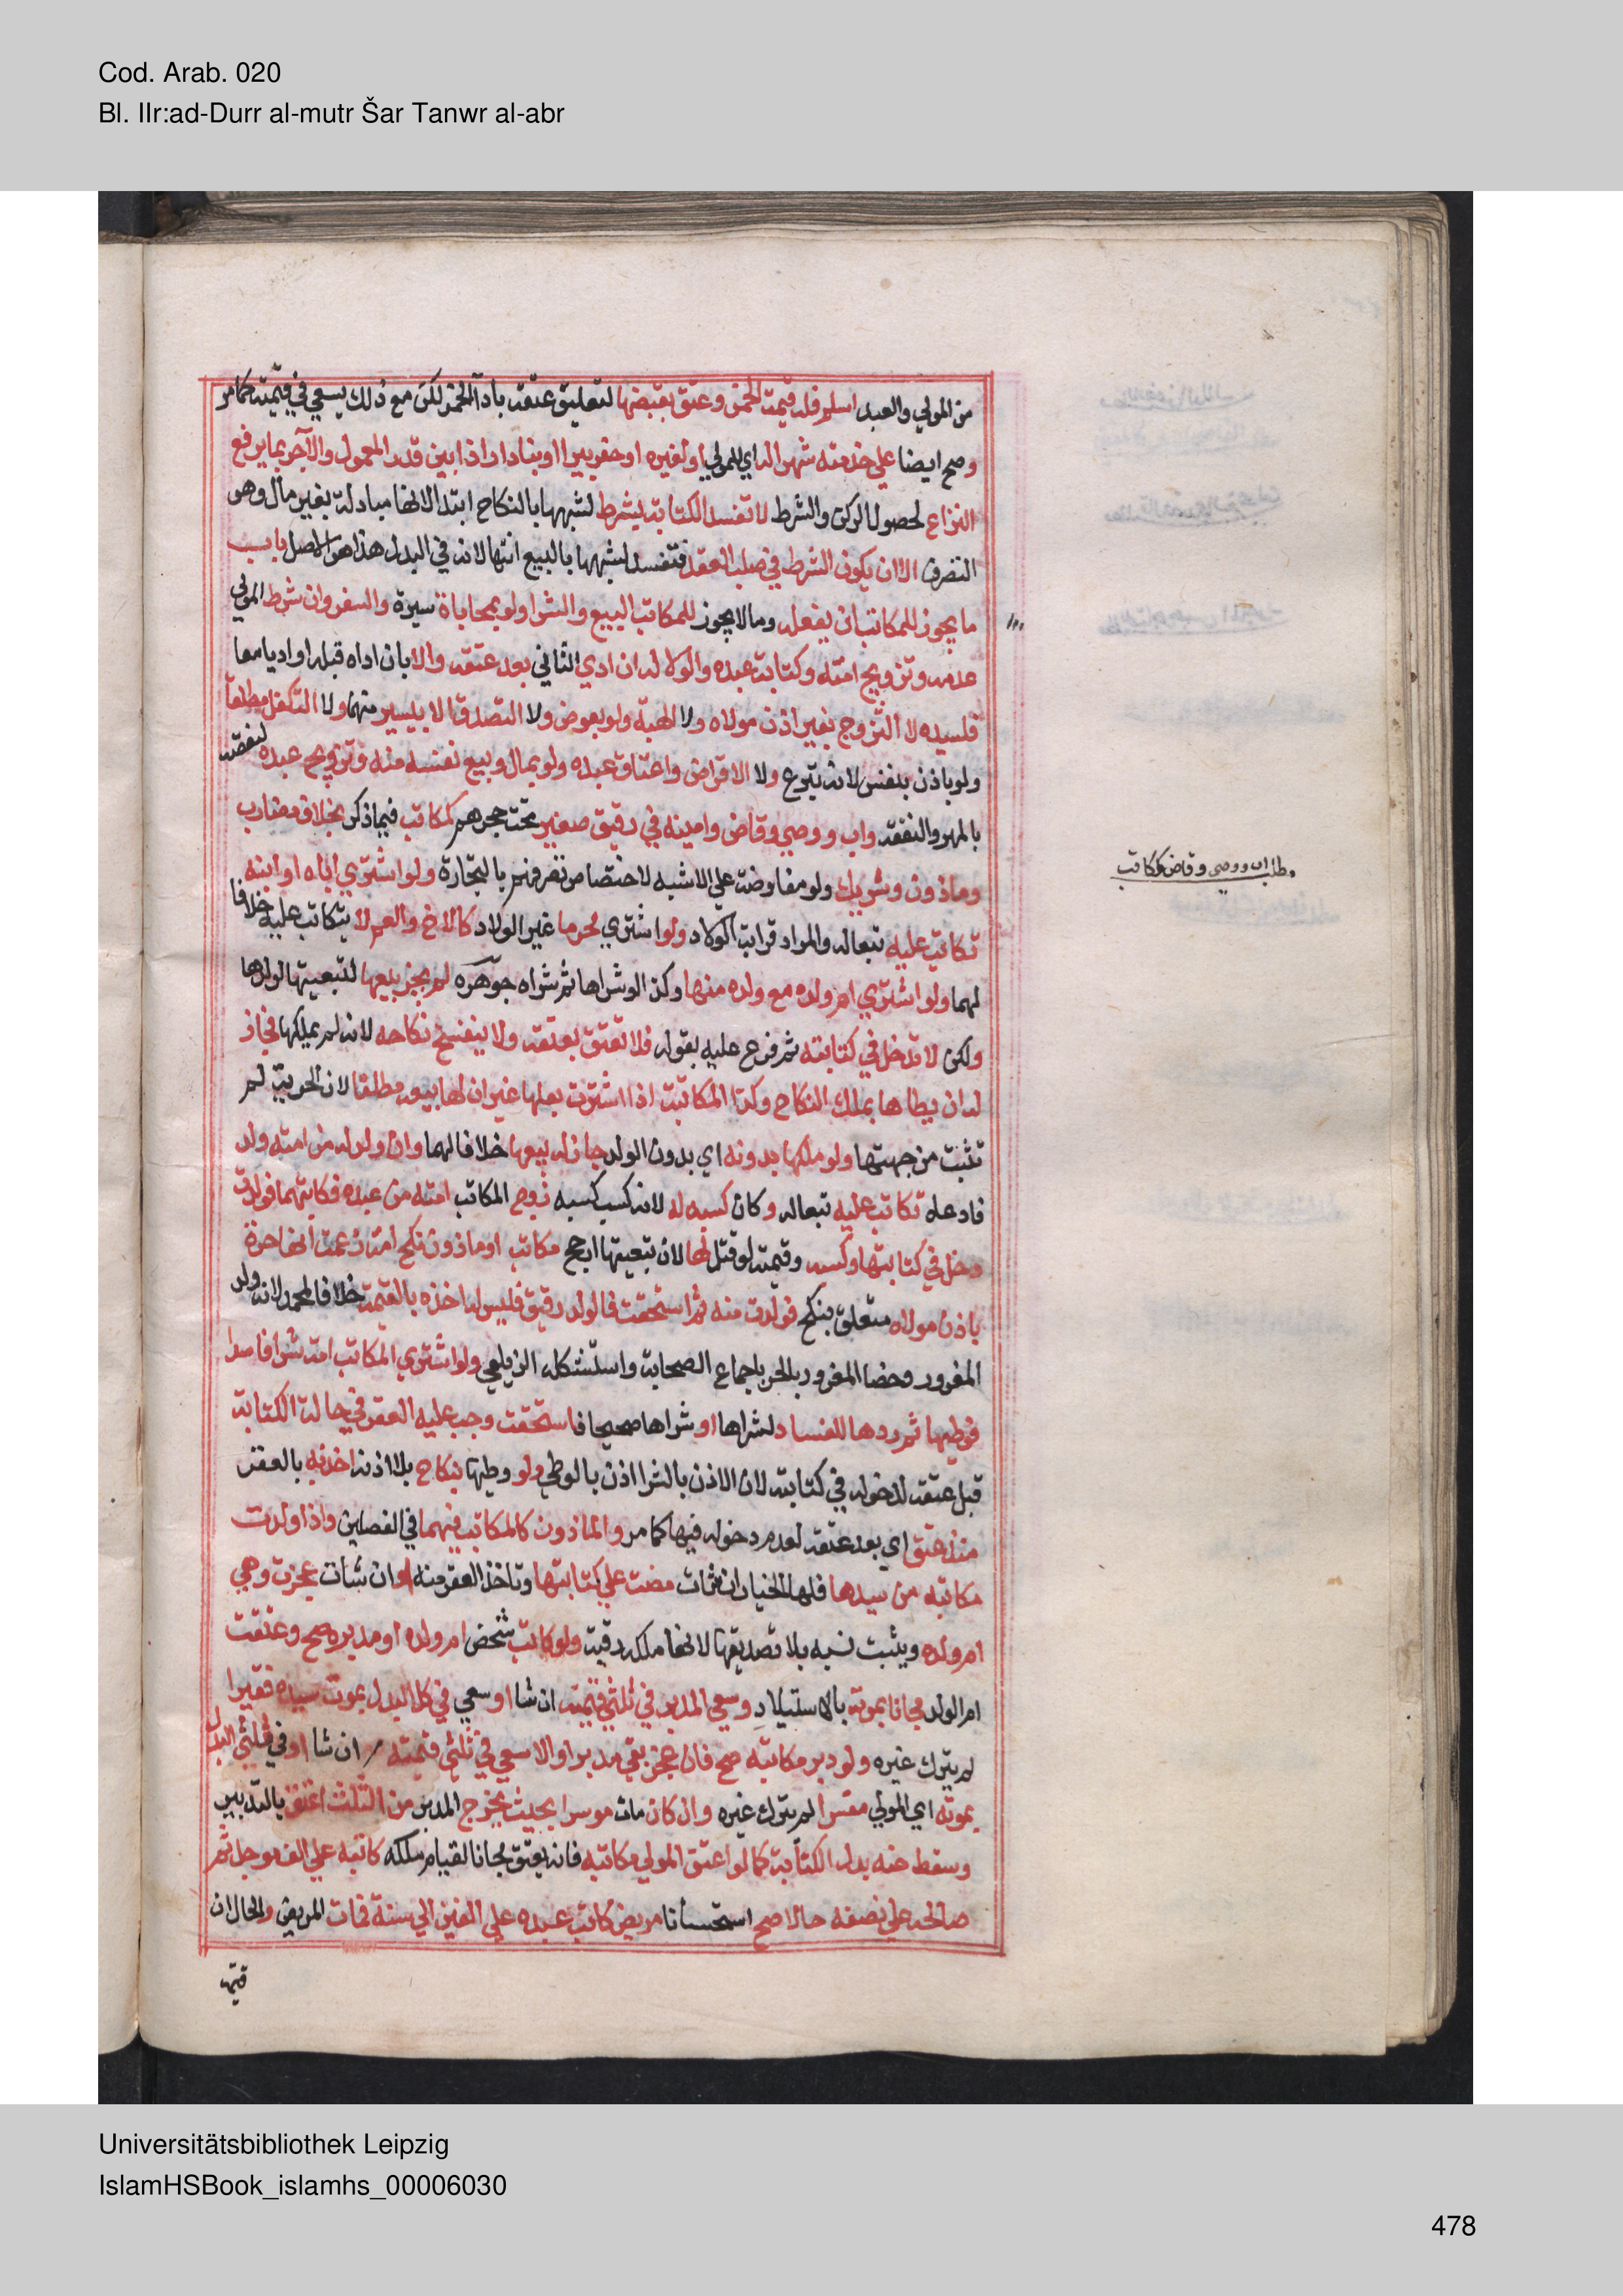 Cod. Arab. 020
Bl. IIr:ad-Durr al-mutr Šar Tanwr al-abr
من المولي والعبد اسلم فله قيمت الخمر وعتق بقبضها لتعليق عتقه باداً الخمر لكن مع ذلك يسعي في قيمته كما مر
وصح ايضا علي خدمته شهرا له اي للمولي او لغيره او حفر بيرا او بنا دار اذا بين قدر المعمول والاجر بما يرفع
النزاع لحصول الركن والشرط لا تفسد الكتابة بشرط لشبهها بالنكاح ابتدا لانها مبادلة بغير مال وهو
التصرف الا ان يكون الشرط في صلب العقد فتفسد لشبهها بالبيع انتها لانه في البدل هذا هو الاصل باب
ما يجوز للمكاتب ان يفعله وما لا يجوز للمكاتب البيع والشرا ولو بمحاباة يسيرة والسفر وان شرط المولي
عدمه وتزويج امته وكتابة عبده والولا له ان ادي الثاني بعد عتقه والا بان اداه قبله او اديا معا
فلسيده لا التزوج بغير اذن مولاه ولا الهبة ولو بعوض ولا التصدق الا بيسير منهما ولا التكفل مطلقا
ولو باذن بنفس لانه تبرع ولا الاقراض واعتاق عبده ولو بمال وبيع نفسه منه وتزويج عبده لنقصه
بالمهر والنفقه واب ووصي وقاض وامينه في رقيق صغير تحت حجرهم كمكاتب فيما ذكر بخلاف مضارب
وماذون وشريك ولو مفاوضة علي الاشبه لاختصاص تصرفهم بالتجارة ولو اشتري اباه او ابنه
تكاتب عليه تبعا له والمراد قرابة الولاد ولو اشتري محرما غير الولاد كالاخ والعم لا يتكاتب عليه خلافا
لهما ولو اشتري ام ولده مع ولده منها وكذا لو شراها ثم شراه جوهره لم يجز بيعها لتبعيتها لولدها
ولكن لا تدخل في كتابته ثم فرع عليه بقوله فلا تعتق بعتقه ولا ينفسخ نكاحه لانه لم يملكها فجاز
له ان يطاها بملك النكاح وكذا المكاتبة اذا اشترت بعلها غير ان لها بيعه مطلقا لان الحرية لم
تثبت من جهتها ولو ملكها بدونه اي بدون الولد جاز له بيعها خلافا لهما وان ولد له من امته ولد
فادعاه تكاتب عليه تبعا له وكان كسبه له لانه كسب كسبه زوج المكاتب امته من عبده فكاتبهما فولدت
دخل في كتابتها وكسبه وقيمته لو قتل لها لان تبعيتها ارجح مكاتب او ماذون نكح امة زعمت انها حرة
باذن مولاه متعلق بنكح فولدت منه ثم استحقت فالولد رقيق فليس له اخذه بالقيمة خلافا لمحمد لانه ولد
المغرور وخصا المغرور بالحر باجماع الصحابة واستشكله الزيلعي ولو اشتري المكاتب امة شرا فاسدا
فوطيها ثم ردها للفساد لشراها او شراها صحيحا فاستحقت وجب عليه العقر في حالة الكتابة
قبل عتقه لدخوله في كتابته لان الاذن بالشرا اذن بالوطي ولو وطيها بنكاح بلا اذنه اخذ به بالعقر
منذ عتق اي بعد عتقه لعدم دخوله فيها كما مر والماذون كالمكاتب فيهما في الفصلين واذا ولدت
مكاتبة من سيدها فلها الخيار ان شات مضت علي كتابتها وتاخذ العقر منه او ان شات عجزت وهي
ام ولده ويثبت نسبه بلا تصديقها لانها ملكه رقبة ولو كاتب شخص ام ولده او مدبره صح وعتقت
ام الولد مجانا بموته بالاستيلاد وسعي المدبر في ثلثي قيمته ان شا او سعي في كل البدل بموت سيده فقيرا
لم يترك غيره ولو دبر مكاتبه صح فان عجز بقي مدبرا والا سعي في ثلثي قيمته ان شا او في ثلثي البدل
بموته اي المولي معسرا لم يترك غيره وان كان مات موسرا بحيث يخرج المدبر من الثلث اعتق بالتدبير
وسقط عنه بدل الكتابة كما لو اعتق المولي مكاتبه فانه يعتق مجانا لقيام ملكه كاتبه علي الف موجل ثم
صالحه علي نصفه حالا صح استحسانا مريض كاتب عبده علي الفين الي سنة فمات المريض والحال ان
مطلب اب ووصي وقاض كمكاتب
قيمته
Universitätsbibliothek Leipzig
IslamHSBook_islamhs_00006030
478